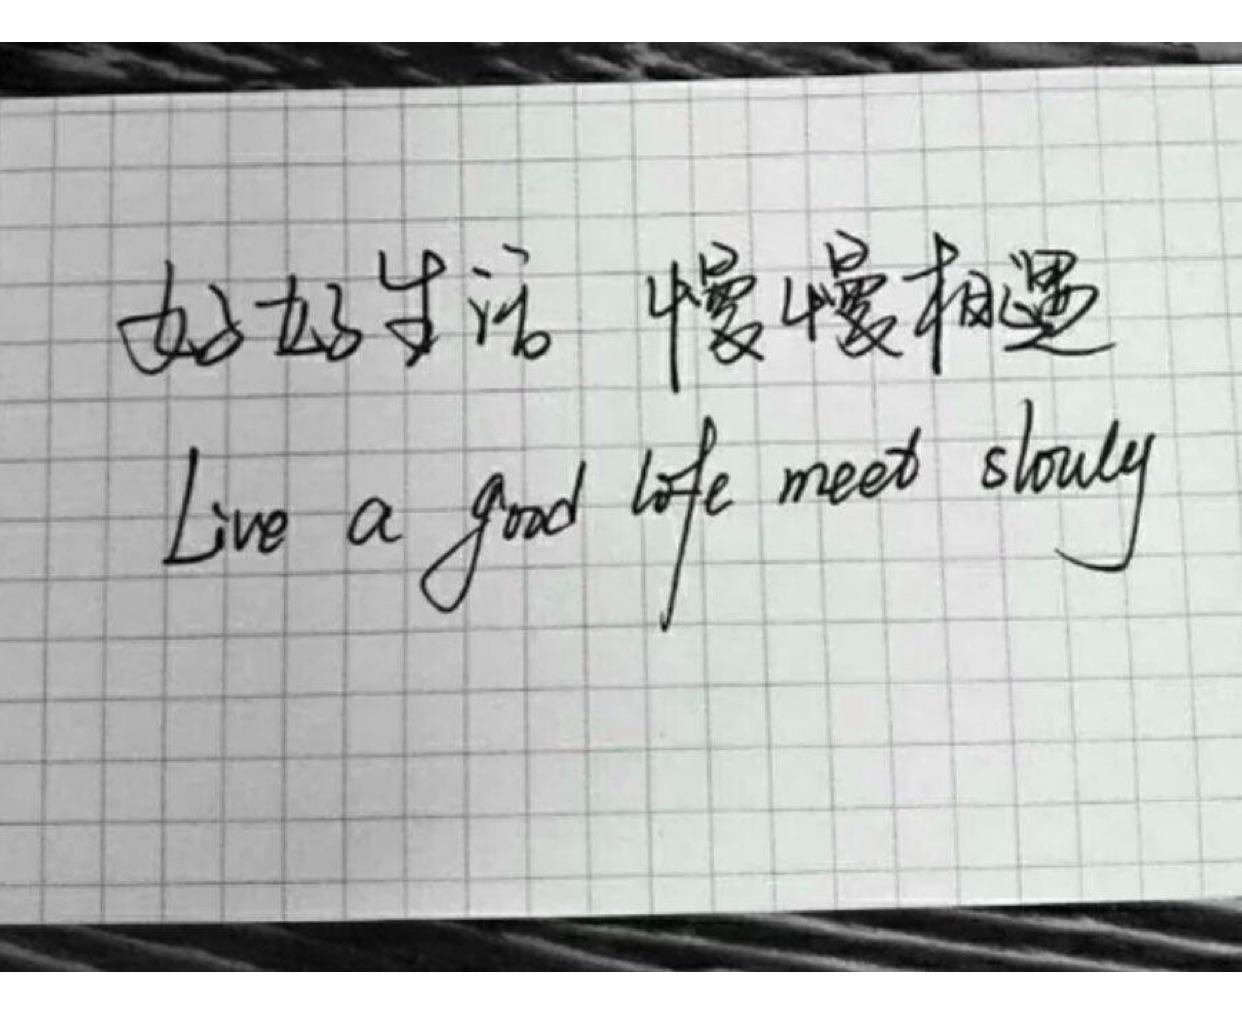 好好生活 慢慢相遇
Live a good life meet slowly